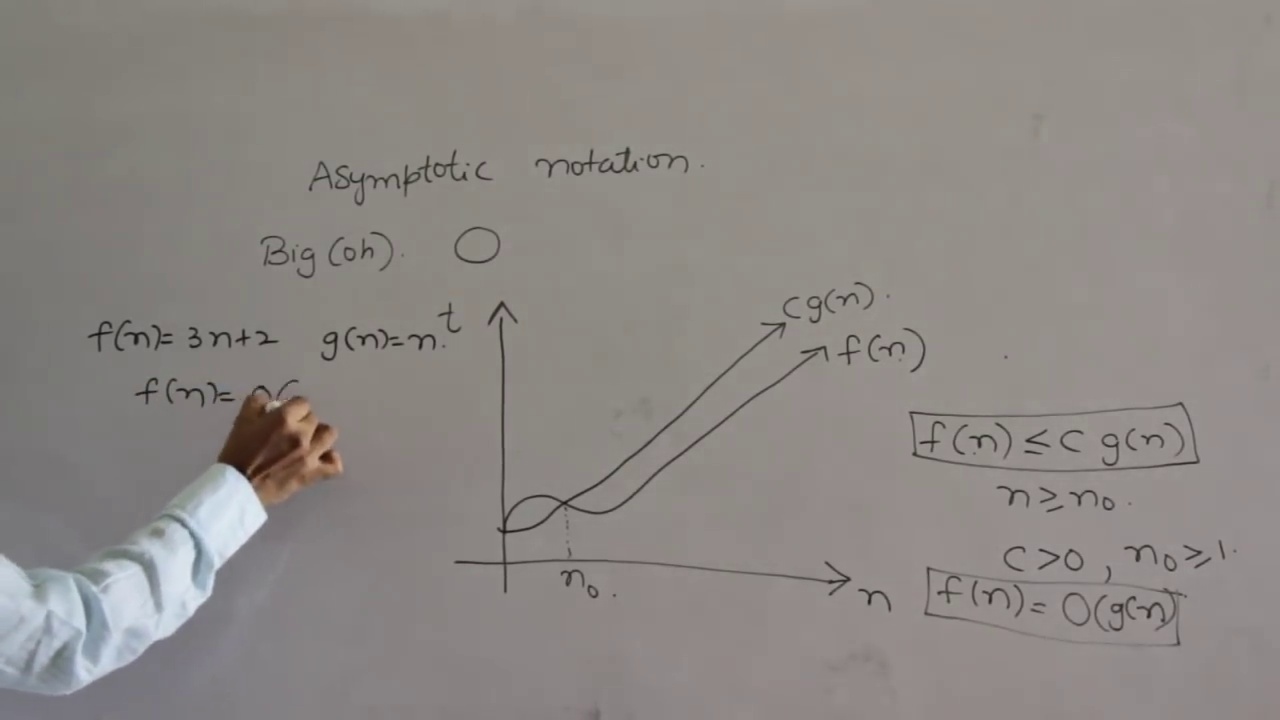 Asymptotic notation.
Big (oh). O
f(n)= 3n+2 g(n)=n.
f(n)= O(
t
cg(n).
f(n)
n₀.
n
f(n) ≤ c g(n)
n ≥ n₀.
c>0, n₀ ≥ 1.
f(n)= O(g(n)